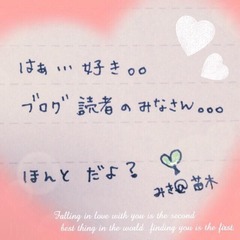 はぁ…好き。。
ブログ読者のみなさん。。。
ほんとだよ?
みき@苗木
Falling in love with you is the second
best thing in the world. finding you is the first.